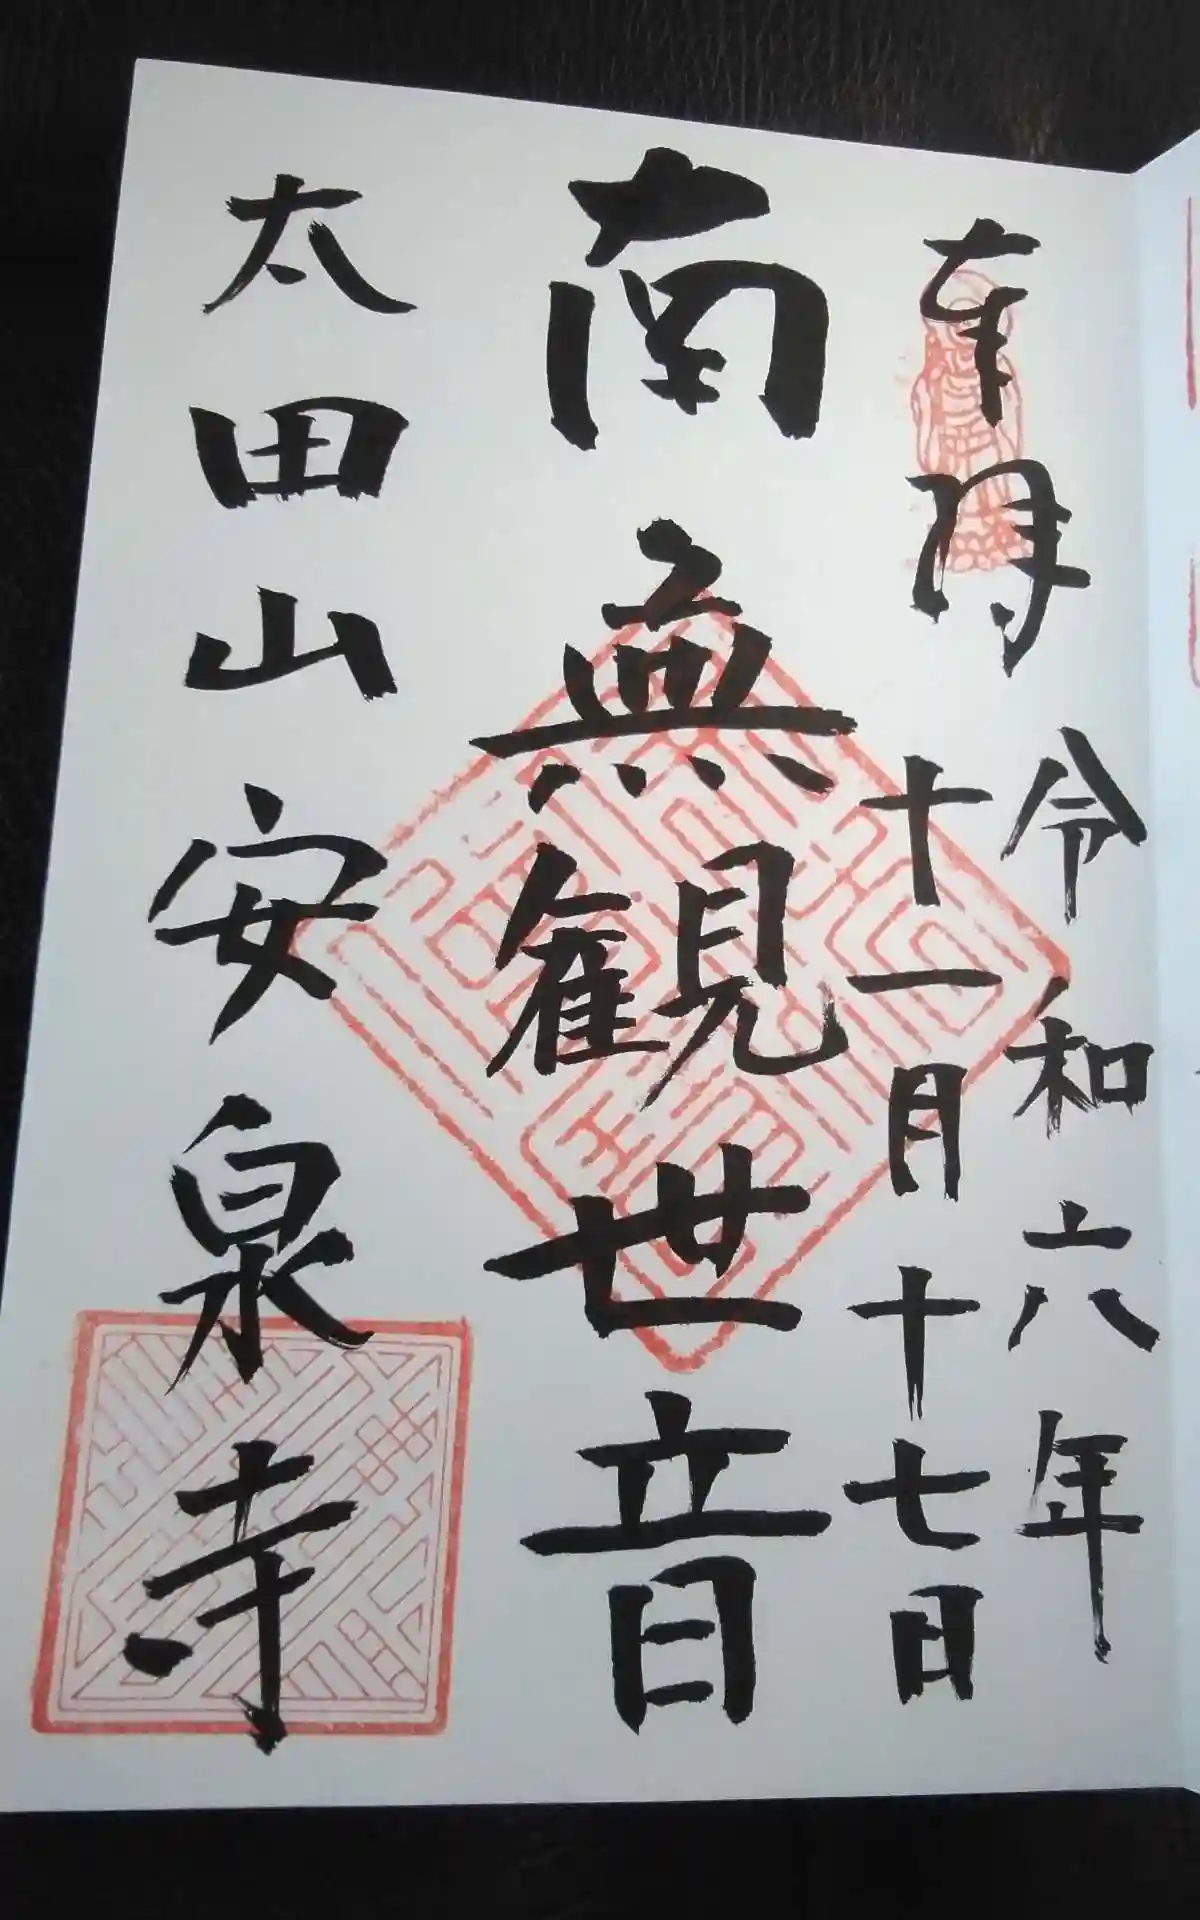 奉拝
令和六年
十一月十七日
南無観世音
太田山安泉寺